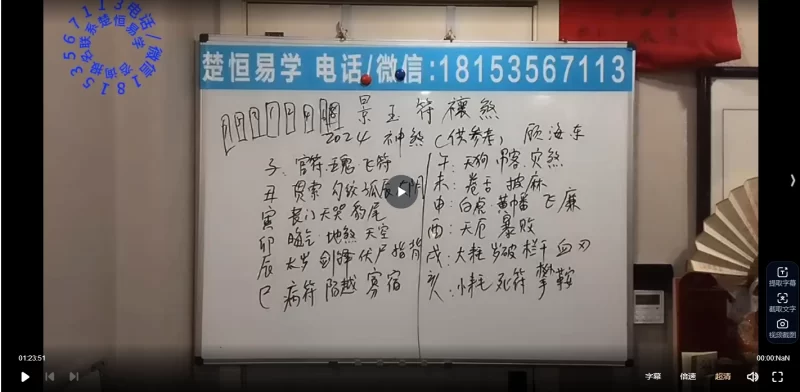 电话/微信18153567113
报名联系楚恒易学
楚恒易学 电话/微信:18153567113
景玉符禳煞
2024 神煞(供参考) 顾海东
子:官符 五鬼 飞符
丑 贯索 勾绞 孤辰
寅 丧门 天哭 豹尾
卯 晦气 地煞 天空
辰 太岁 剑锋 伏尸 指背
巳 病符 陌越 寡宿
午:天狗 吊客 灾煞
未:卷舌 披麻
申:白虎 黄幡 飞廉
酉:天厄 暴败
戌:大耗 岁破 栏干 血刃
亥:小耗 死符 攀鞍
提取字幕
截取文字
视频截图
01:23:51
00:00:NaN
字幕 倍速 超清